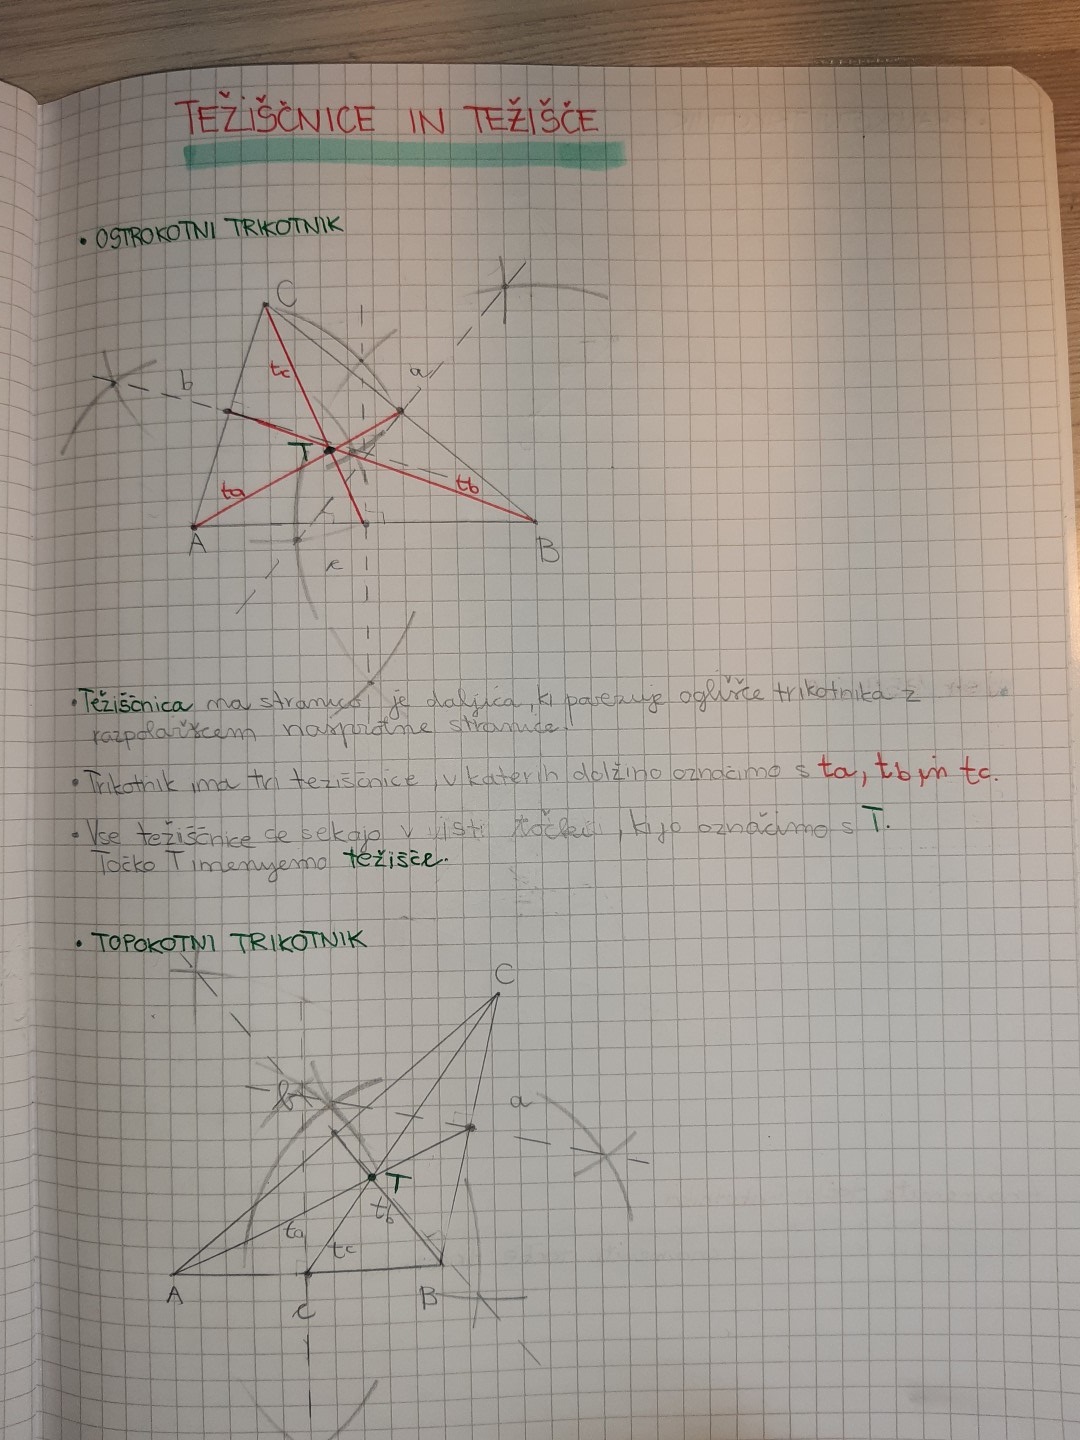 TEŽIŠČNICE IN TEŽIŠČE
• OSTROKOTNI TRIKOTNIK
C
a
b
tc
T
ta
tb
A
c
B
• Težiščnica na stranico je daljica, ki povezuje oglišče trikotnika z
razpolaiščem nasprotne stranice.
• Trikotnik ima tri težiščnice, v katerih dolžino označimo s ta, tb in tc.
• Vse težiščnice se sekajo v isti točki, ki jo označimo s T.
Točko T imenujemo težišče.
• TOPOKOTNI TRIKOTNIK
C
b
a
T
tb
ta
tc
A
c
B